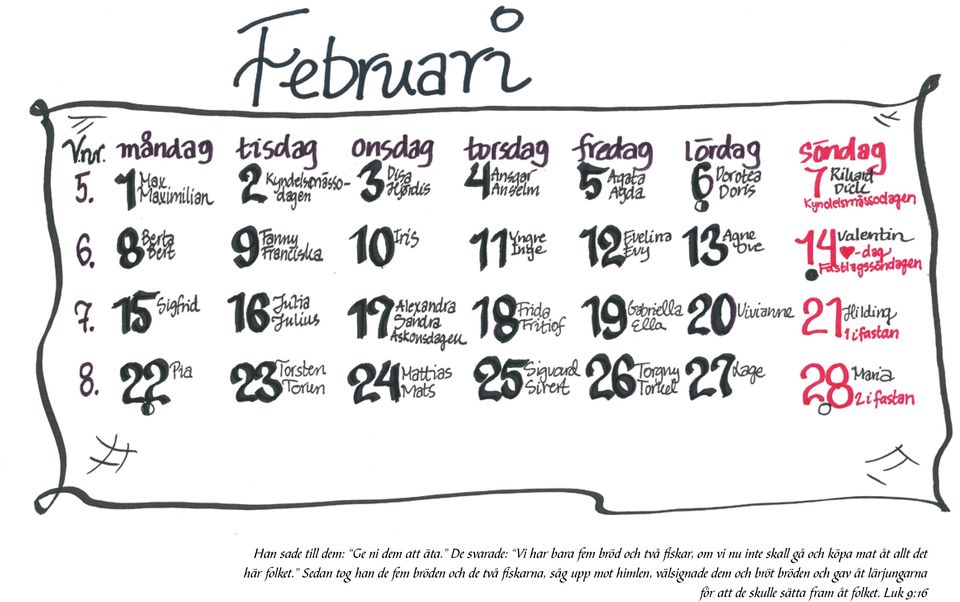 Februari
V.nr. måndag tisdag onsdag torsdag fredag lördag söndag
5. 1 Max Maximilian 2 Kyndelsmässodagen 3 Disa Hjördis 4 Ansgar Anselm 5 Agata Agda 6 Dorotea Doris 7 Rikard Dick Kyndelsmässodagen
6. 8 Berta Bert 9 Fanny Franciska 10 Iris 11 Yngve Inge 12 Evelina Evy 13 Agne Ove 14 Valentin ♥-dag Fastlagssöndagen
7. 15 Sigfrid 16 Julia Julius 17 Alexandra Sandra Askonsdagen 18 Frida Fritiof 19 Gabriella Ella 20 Vivianne 21 Hilding 1 i fastan
8. 22 Pia 23 Torsten Torun 24 Mattias Mats 25 Sigvard Sivert 26 Torgny Torkel 27 Lage 28 Maria 2 i fastan
Han sade till dem: “Ge ni dem att äta.” De svarade: “Vi har bara fem bröd och två fiskar, om vi nu inte skall gå och köpa mat åt allt det
här folket.” Sedan tog han de fem bröden och de två fiskarna, såg upp mot himlen, välsignade dem och bröt bröden och gav åt lärjungarna
för att de skulle sätta fram åt folket. Luk 9:16